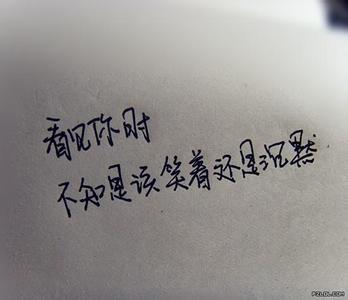 看见你时
不知是该笑着还是沉默
PZLDL.COM